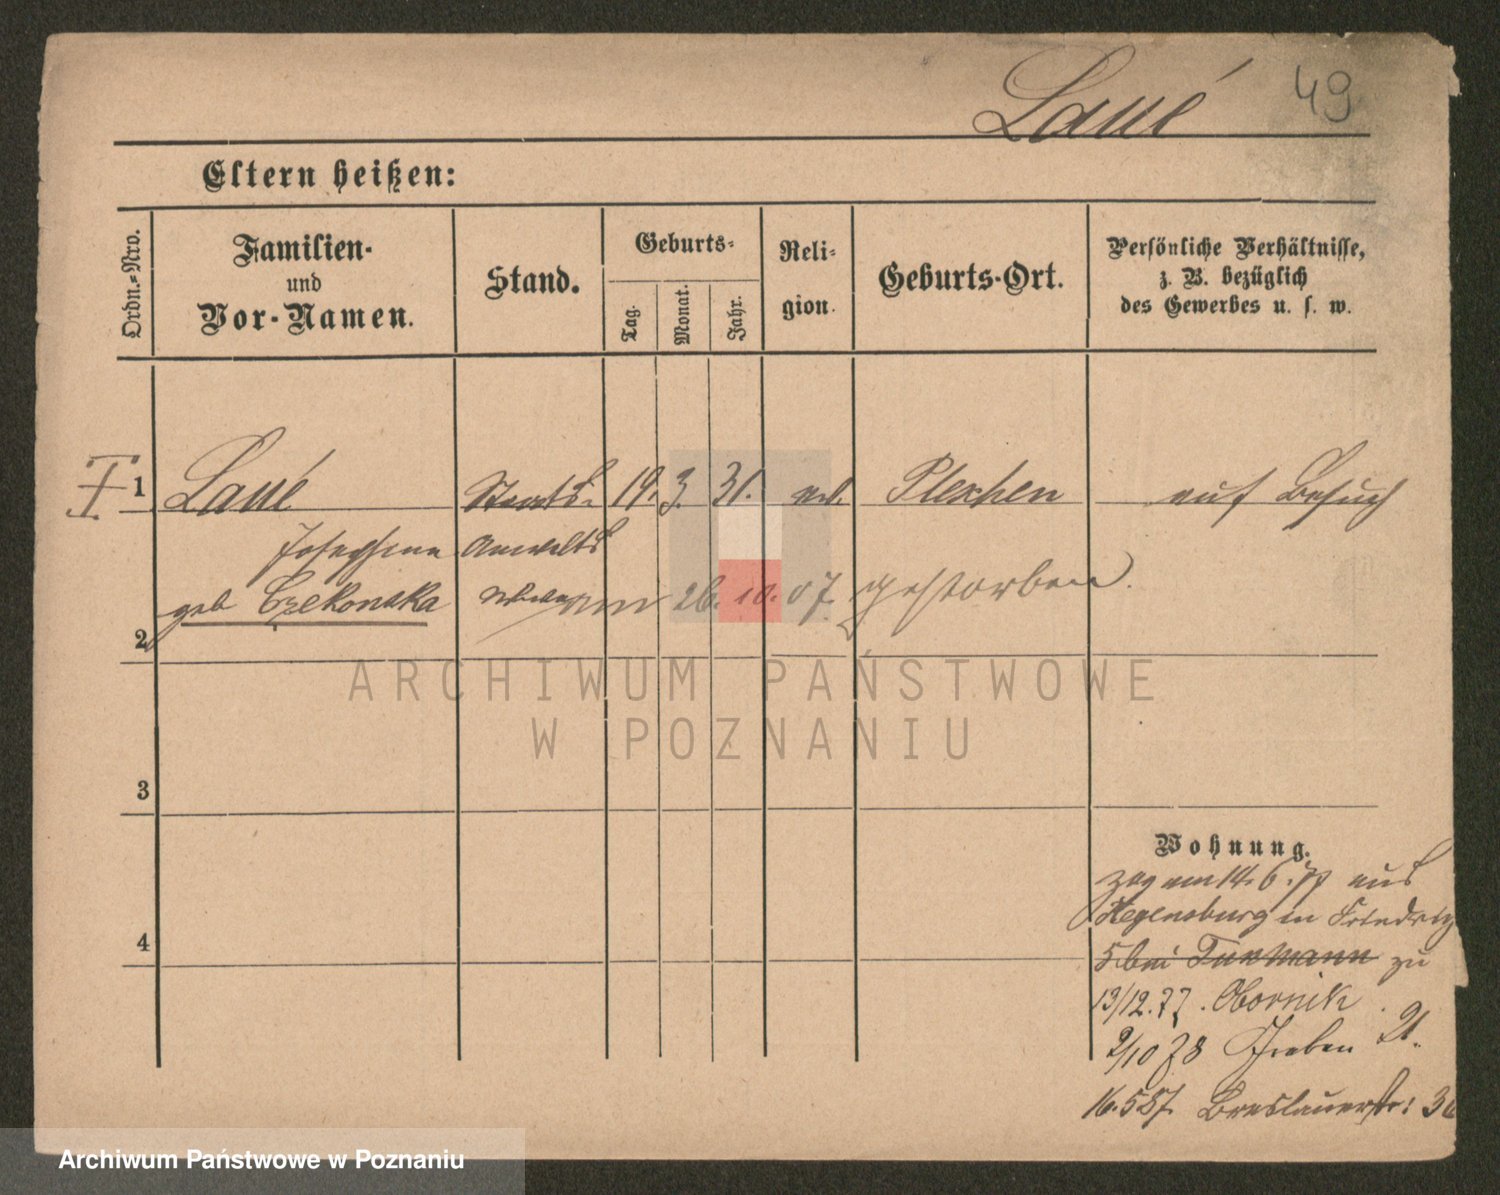 Laué 49
Eltern heißen:
Ordn.-Nro.
Familien-
und
Vor-Namen.
Stand.
Geburts-
Tag.
Monat.
Jahr.
Reli-
gion.
Geburts-Ort.
Persönliche Verhältnisse,
z. B. bezüglich
des Gewerbes u. s. w.
1 Laué Staats- 19. 3. 31. Pleschen auf Besuch
Josephine Anwalts
geb Czekonska am 26. 10. 07. gestorben.
2
ARCHIWUM PAŃSTWOWE
W POZNANIU
3
Wohnung.
zog am 14. 6. 77 aus
Regensburg in Friedrich
5 bei Turmann zu
13/12. 77. Obornik
2/10 78 Graben 21.
16. 5 87. Breslauerstr: 3
4
Archiwum Państwowe w Poznaniu